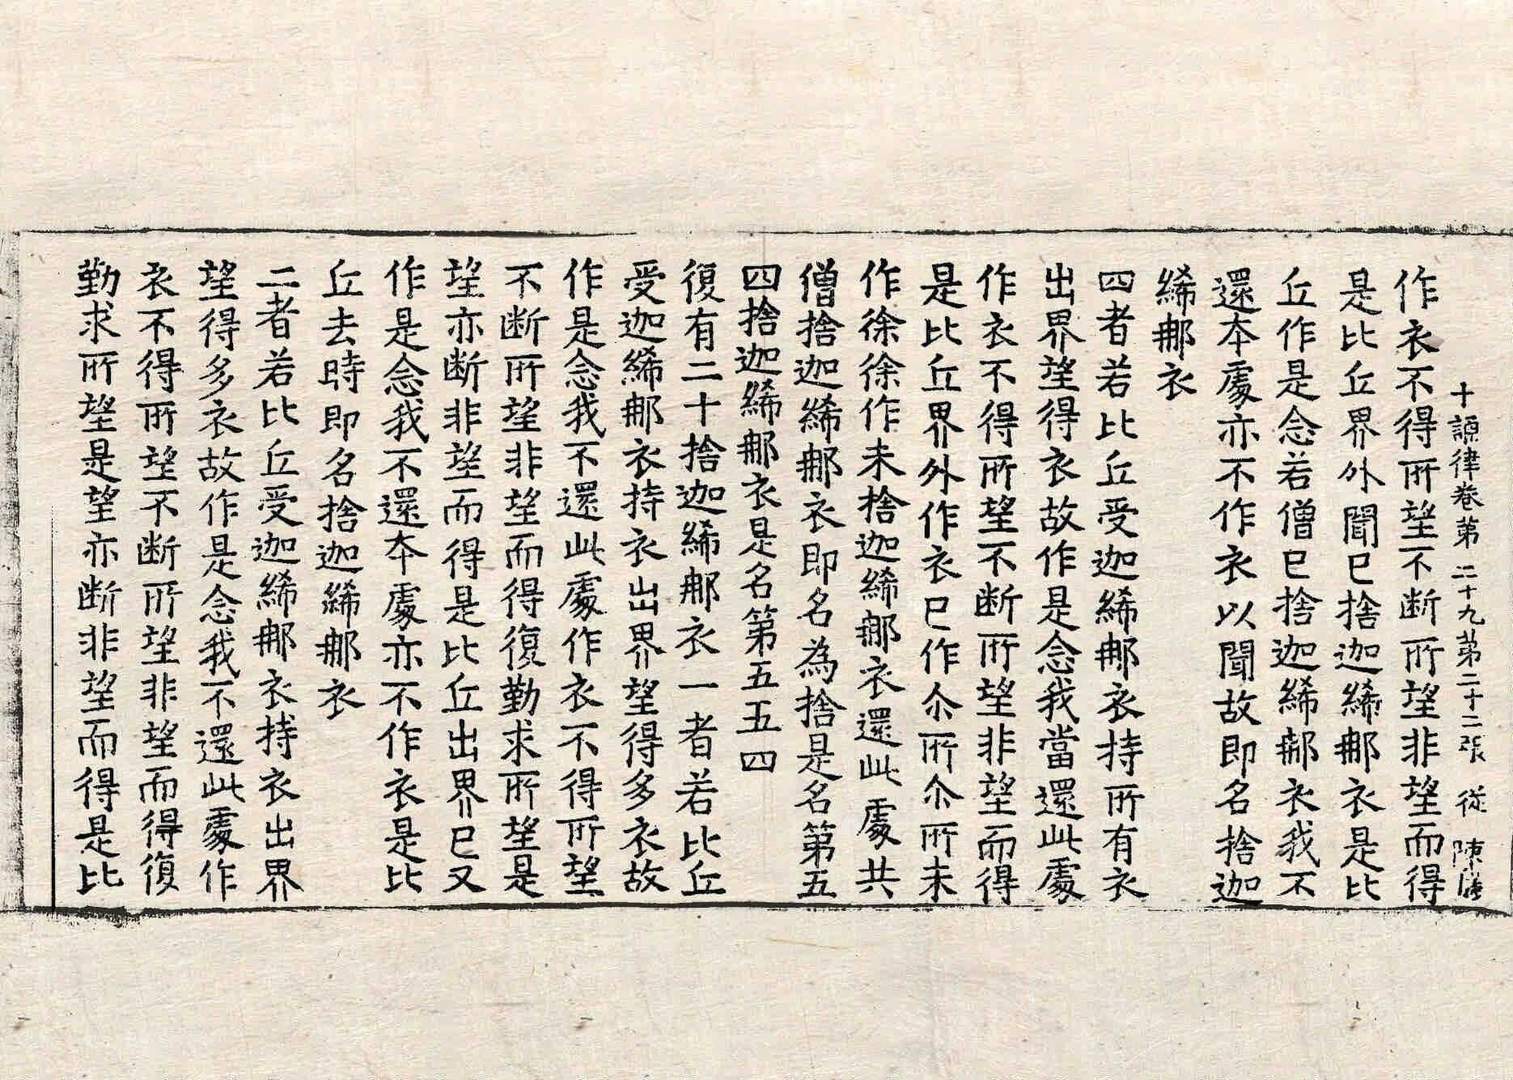 十誦律卷第二十九第二十二張 從 陳
作衣不得所望不断所望非望而得
是比丘界外聞已捨迦絺那衣是比
丘作是念若僧已捨迦絺那衣我不
還本處亦不作衣以聞故即名捨迦
絺那衣
四者若比丘受迦絺那衣持所有衣
出界望得衣故作是念我當還此處
作衣不得所望不断所望非望而得
是比丘界外作衣已作尒所尒所未
作徐徐作未捨迦絺那衣還此處共
僧捨迦絺那衣即名為捨是名第五
四捨迦絺那衣是名第五五四
復有二十捨迦絺那衣一者若比丘
受迦絺那衣持衣出界望得多衣故
作是念我不還此處作衣不得所望
不断所望非望而得復勤求所望是
望亦断非望而得是比丘出界已又
作是念我不還本處亦不作衣是比
丘去時即名捨迦絺那衣
二者若比丘受迦絺那衣持衣出界
望得多衣故作是念我不還此處作
衣不得所望不断所望非望而得復
勤求所望是望亦断非望而得是比